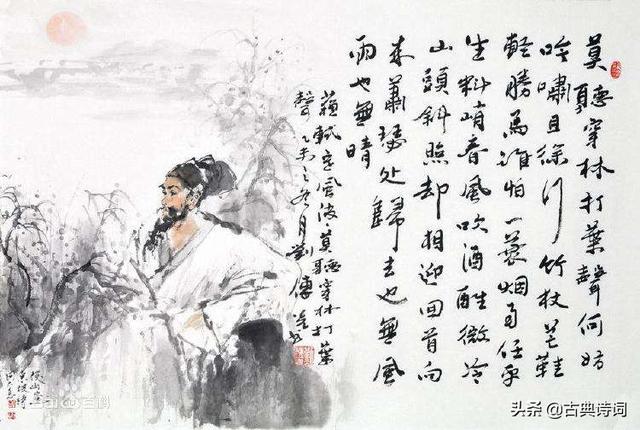 莫聽穿林打葉聲何妨
吟嘯且徐行竹杖芒鞋
輕勝馬誰怕一蓑烟雨任平
生料峭春風吹酒醒微冷
山頭斜照却相迎回首向
来蕭瑟处歸去也無風
雨也無晴
蘇軾定風波莫聽穿林打葉
聲乙未之冬月劉傳
Bai 百科
头条 @古典诗词